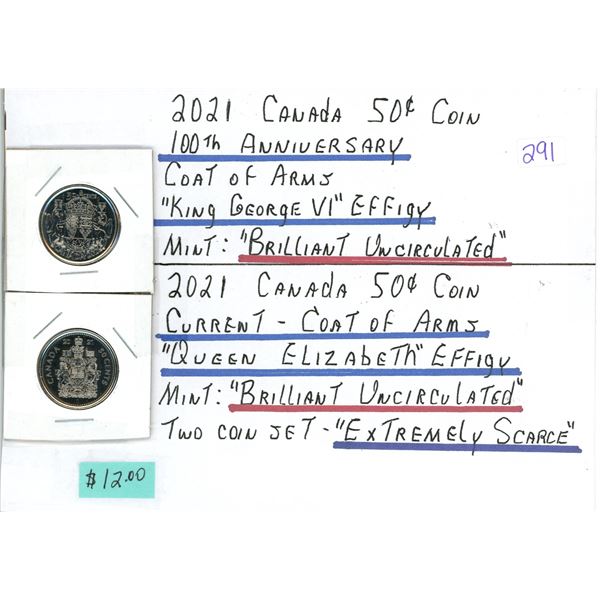 2021 CANADA 50¢ COIN
100TH ANNIVERSARY
COAT OF ARMS
"KING GEORGE VI" EFFIGY
MINT: "BRILLIANT UNCIRCULATED"
291
2021 CANADA 50¢ COIN
CURRENT - COAT OF ARMS
"QUEEN ELIZABETH" EFFIGY
MINT: "BRILLIANT UNCIRCULATED"
TWO COIN SET - "EXTREMELY SCARCE"
CANADA 20 21 50 CENTS
$12.00